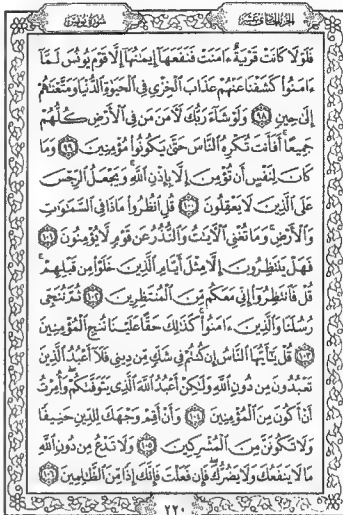 الجزء الحادي عشر
سورة يونس
فَلَوْلَا كَانَتْ قَرْيَةٌ ءَامَنَتْ فَنَفَعَهَآ إِيمَٰنُهَآ إِلَّا قَوْمَ يُونُسَ لَمَّآ
ءَامَنُوا۟ كَشَفْنَا عَنْهُمْ عَذَابَ ٱلْخِزْىِ فِى ٱلْحَيَوٰةِ ٱلدُّنْيَا وَمَتَّعْنَٰهُمْ
إِلَىٰ حِينٍ ٩٨ وَلَوْ شَآءَ رَبُّكَ لَءَامَنَ مَن فِى ٱلْأَرْضِ كُلُّهُمْ
جَمِيعًا أَفَأَنتَ تُكْرِهُ ٱلنَّاسَ حَتَّىٰ يَكُونُوا۟ مُؤْمِنِينَ ٩٩ وَمَا
كَانَ لِنَفْسٍ أَن تُؤْمِنَ إِلَّا بِإِذْنِ ٱللَّهِ وَيَجْعَلُ ٱلرِّجْسَ
عَلَى ٱلَّذِينَ لَا يَعْقِلُونَ ١٠٠ قُلِ ٱنظُرُوا۟ مَاذَا فِى ٱلسَّمَٰوَٰتِ
وَٱلْأَرْضِ وَمَا تُغْنِى ٱلْءَايَٰتُ وَٱلنُّذُرُ عَن قَوْمٍ لَّا يُؤْمِنُونَ ١٠١
فَهَلْ يَنتَظِرُونَ إِلَّا مِثْلَ أَيَّامِ ٱلَّذِينَ خَلَوْا۟ مِن قَبْلِهِمْ
قُلْ فَٱنتَظِرُوٓا۟ إِنِّى مَعَكُم مِّنَ ٱلْمُنتَظِرِينَ ١٠٢ ثُمَّ نُنَجِّى
رُسُلَنَا وَٱلَّذِينَ ءَامَنُوا۟ كَذَٰلِكَ حَقًّا عَلَيْنَا نُنجِ ٱلْمُؤْمِنِينَ
١٠٣ قُلْ يَٰٓأَيُّهَا ٱلنَّاسُ إِن كُنتُمْ فِى شَكٍّ مِّن دِينِى فَلَآ أَعْبُدُ ٱلَّذِينَ
تَعْبُدُونَ مِن دُونِ ٱللَّهِ وَلَٰكِنْ أَعْبُدُ ٱللَّهَ ٱلَّذِى يَتَوَفَّىٰكُمْ وَأُمِرْتُ
أَنْ أَكُونَ مِنَ ٱلْمُؤْمِنِينَ ١٠٤ وَأَنْ أَقِمْ وَجْهَكَ لِلدِّينِ حَنِيفًا
وَلَا تَكُونَنَّ مِنَ ٱلْمُشْرِكِينَ ١٠٥ وَلَا تَدْعُ مِن دُونِ ٱللَّهِ
مَا لَا يَنفَعُكَ وَلَا يَضُرُّكَ فَإِن فَعَلْتَ فَإِنَّكَ إِذًا مِّنَ ٱلظَّٰلِمِينَ ١٠٦
٢٢٠